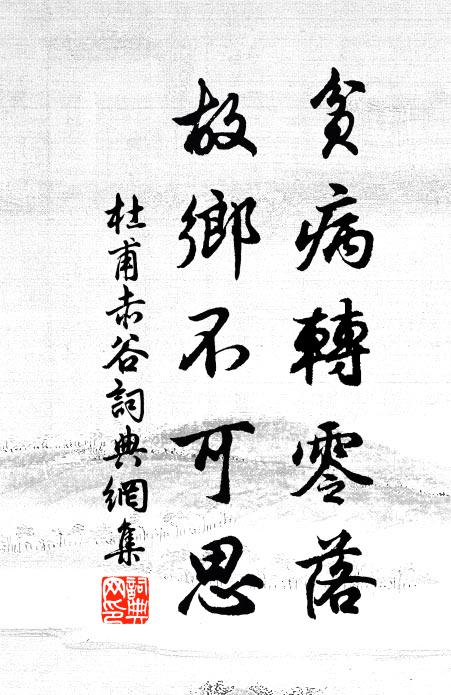 貧病轉零落
故鄉不可思
杜甫赤谷詞典網集
詞典網印